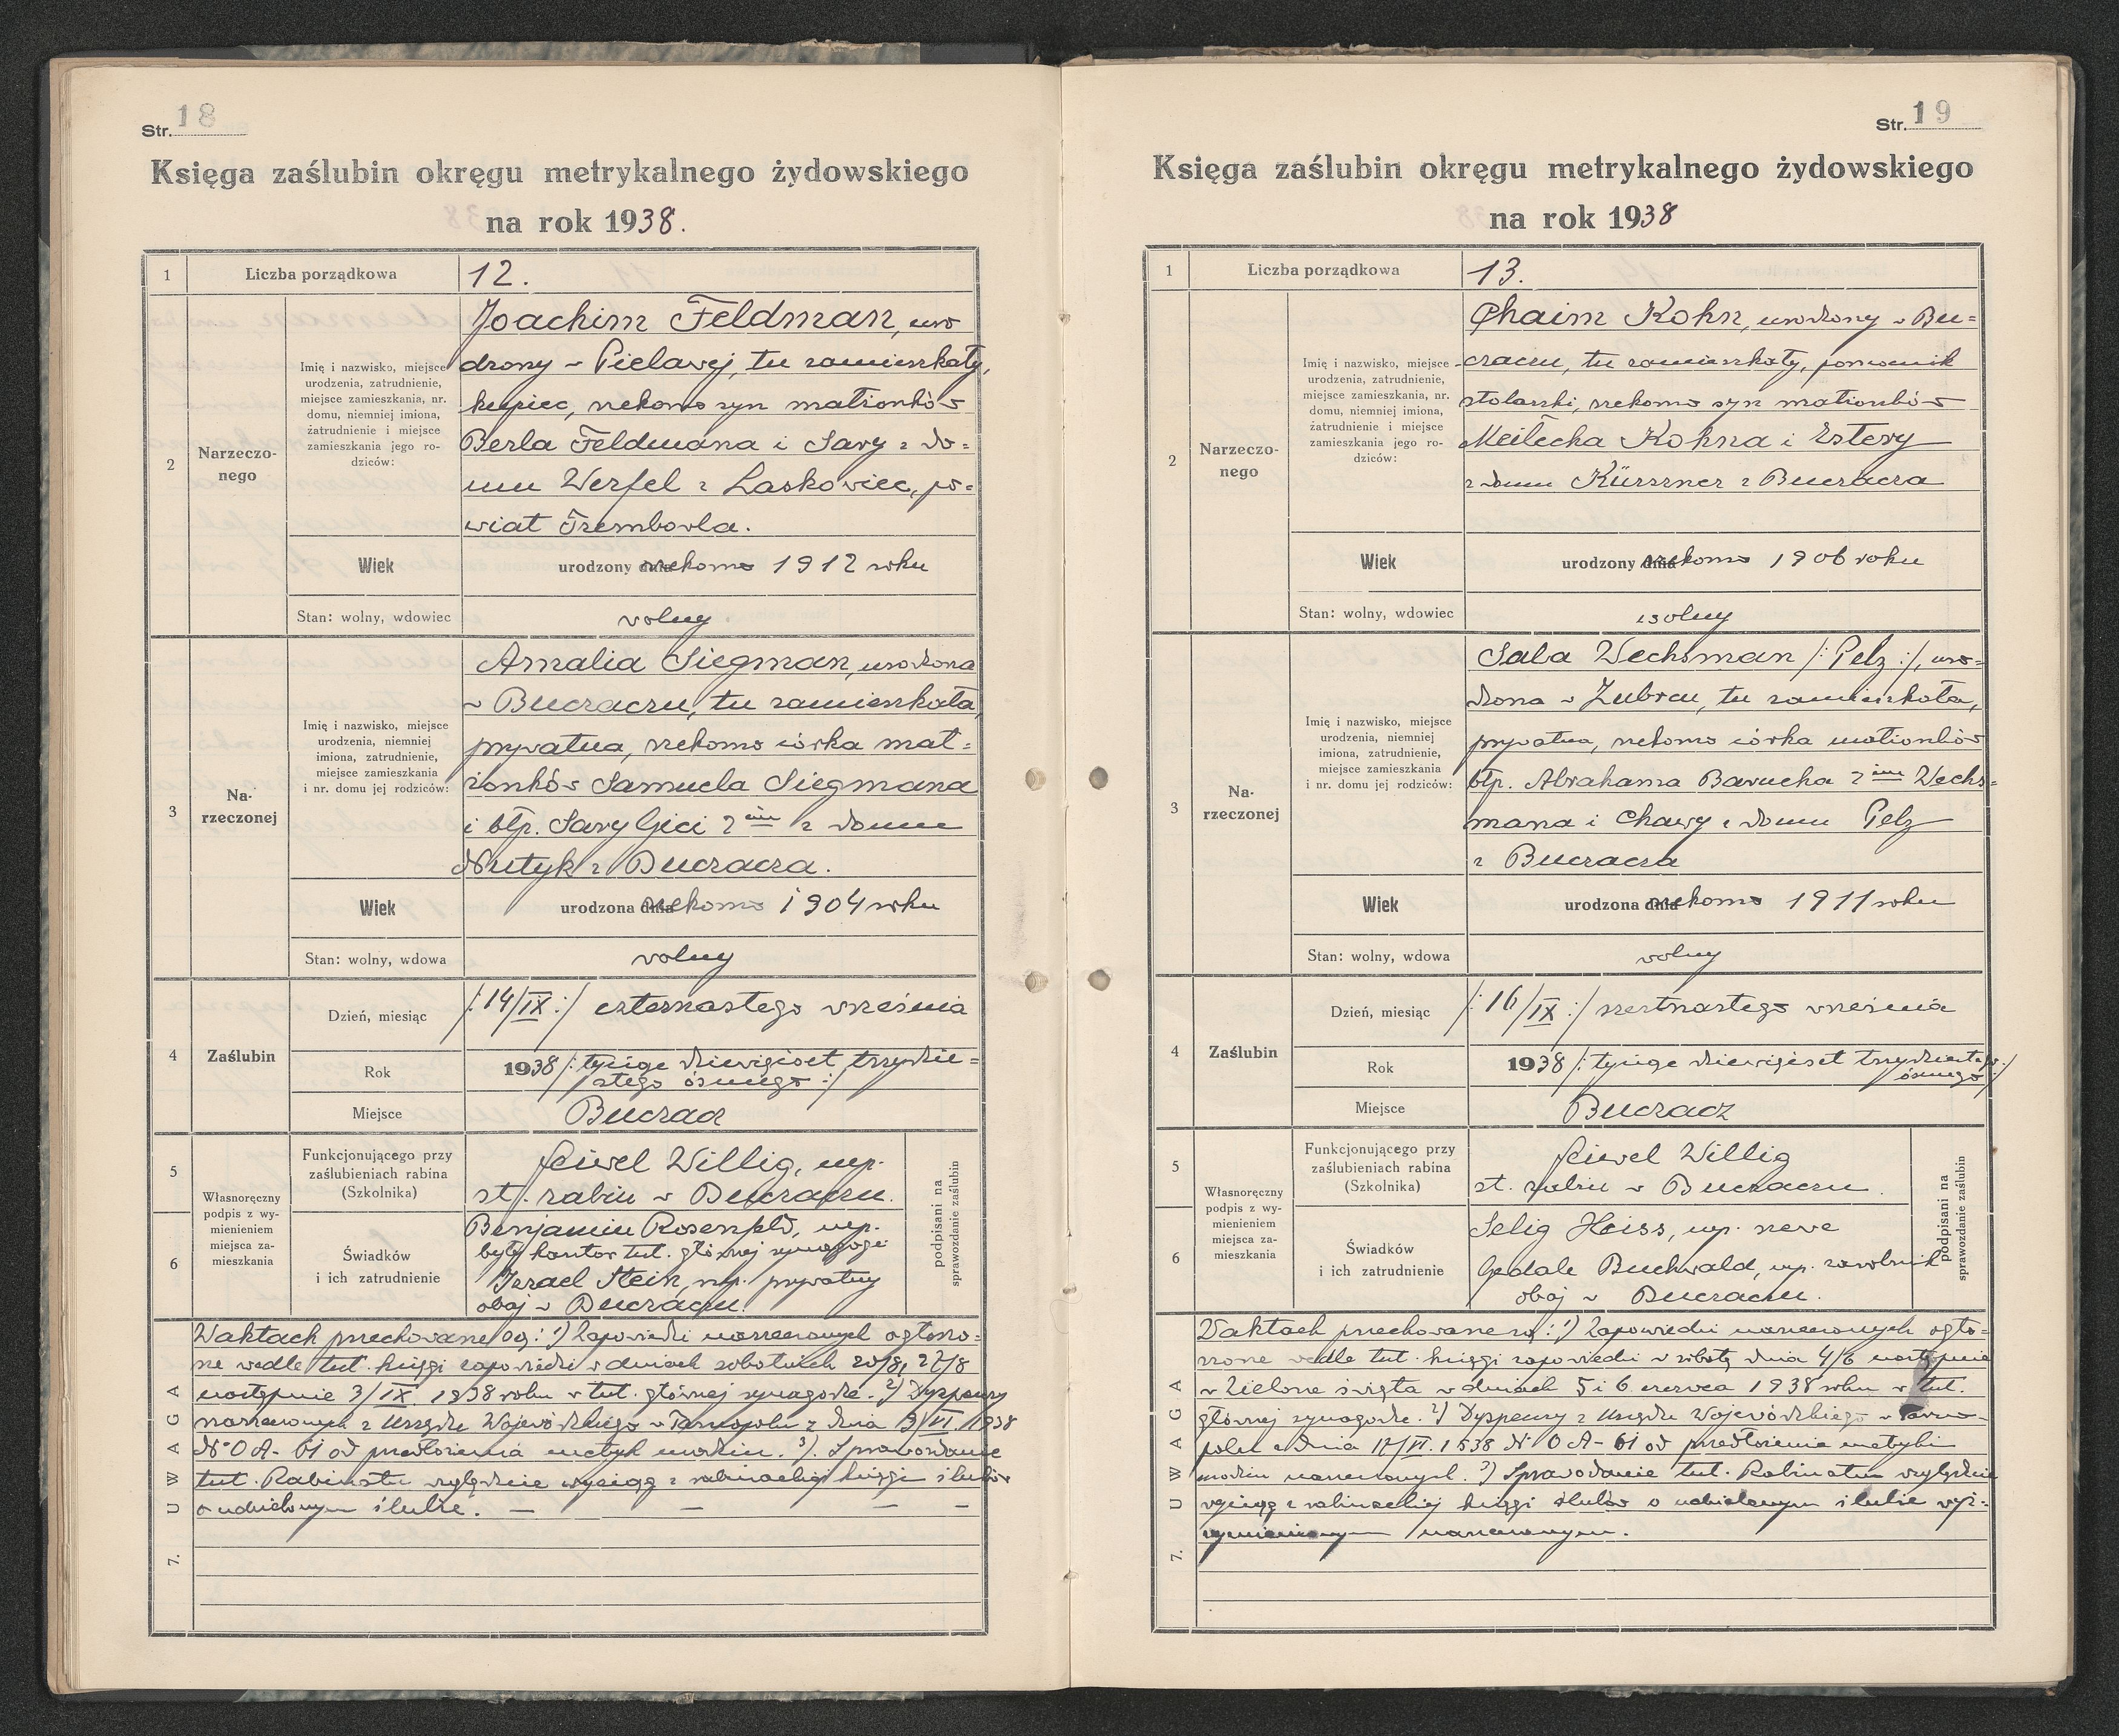 Str. 18
Księga zaślubin okręgu metrykalnego żydowskiego
na rok 1938.
1 Liczba porządkowa 12.
2 Narzeczo-
nego
Imię i nazwisko, miejsce
urodzenia, zatrudnienie,
miejsce zamieszkania, nr.
domu, niemniej imiona,
zatrudnienie i miejsce
zamieszkania jego ro-
dziców:
Joachim Feldman, uro
dzony w Pielawej, tu zamieszkały,
kupiec, rzekomo syn małżonków
Berla Feldmana i Sary z do=
mu Werfel z Laskowiec, po=
wiat Trembowla.
Wiek urodzony dnia rzekomo 1912 roku
Stan: wolny, wdowiec wolny
3 Na-
rzeczonej
Imię i nazwisko, miejsce
urodzenia, niemniej
imiona, zatrudnienie,
miejsce zamieszkania
i nr. domu jej rodziców:
Amalia Siegman, urodzona
w Buczaczu, tu zamieszkała,
prywatna, rzekomo córka mał=
żonków Samuela Siegmana
i błp. Sary Gici 2 im z domu
z Buczacza.
Wiek urodzona dnia rzekomo 1904 roku
Stan: wolny, wdowa wolny
4 Zaślubin
Dzień, miesiąc /: 14/IX :/ czternastego września
Rok 1938 /: tysiąc dziewięćset trzydzie=
stego ósmego :/
Miejsce Buczacz
5 Własnoręczny
podpis z wy-
mienieniem
miejsca za-
mieszkania
Funkcjonującego przy
zaślubieniach rabina
(Szkolnika)
Feiwel Willig, mp.
st. rabin w Buczaczu.
6 Świadków
i ich zatrudnienie
Benjamin Rosenfeld, mp.
były kantor tut. głównej synagogi
Izrael Stein, mp. prywatny
obaj w Buczaczu.
podpisani na
sprawozdanie zaślubin
7. UWAGA
W aktach przechowane są: 1) Zapowiedzi narzeczonych ogłoszo=
ne wedle tut. księgi zapowiedzi w dniach sobotnich 20/8, 27/8
następnie 3/IX. 1938 roku w tut. głównej synagodze. 2) Dyspensy
narzeczonych z Urzędu Wojewódzkiego w Tarnopolu z dnia /VI. 1938
N° OA- 61 od przedłożenia metryk urodzin. 3). Sprawozdanie
tut. Rabinatu względnie wyciąg z rabinackiej księgi ślubów
o udzielonym ślubie. — — — —
Str. 19
Księga zaślubin okręgu metrykalnego żydowskiego
na rok 1938
1 Liczba porządkowa 13.
2 Narzeczo-
nego
Imię i nazwisko, miejsce
urodzenia, zatrudnienie,
miejsce zamieszkania, nr.
domu, niemniej imiona,
zatrudnienie i miejsce
zamieszkania jego ro-
dziców:
Chaim Kohn, urodzony w Bu=
czaczu, tu zamieszkały, pomocnik
stolarski, rzekomo syn małżonków
Meilecha Kohna i Estery
z domu Kürszner z Buczacza
Wiek urodzony dnia rzekomo 1906 roku
Stan: wolny, wdowiec wolny
3 Na-
rzeczonej
Imię i nazwisko, miejsce
urodzenia, niemniej
imiona, zatrudnienie,
miejsce zamieszkania
i nr. domu jej rodziców:
Sala Wechsman /: Pelz :/, uro=
dzona w Zubrcu, tu zamieszkała,
prywatna, rzekomo córka małżonków
błp. Abrahama Barucha 2 im Wechs=
mana i Chawy z domu Pelz
z Buczacza
Wiek urodzona dnia rzekomo 1911 roku
Stan: wolny, wdowa wolny
4 Zaślubin
Dzień, miesiąc /: 16/IX :/ szesnastego września
Rok 1938 /: tysiąc dziewięćset trzydziestego
ósmego :/
Miejsce Buczacz
5 Własnoręczny
podpis z wy-
mienieniem
miejsca za-
mieszkania
Funkcjonującego przy
zaślubieniach rabina
(Szkolnika)
Feiwel Willig
st. rabin w Buczaczu.
6 Świadków
i ich zatrudnienie
Selig Heiss, mp.
Gedale Buchwald, mp. zarobnik
obaj w Buczaczu.
podpisani na
sprawozdanie zaślubin
7. UWAGA
W aktach przechowane są: 1) Zapowiedzi narzeczonych ogło=
szone wedle tut. księgi zapowiedzi w sobotę dnia 4/6 następnie
w Zielone święta w dniach 5 i 6 czerwca 1938 roku w tut.
głównej synagodze. 2) Dyspensy z Urzędu Wojewódzkiego w Tarno=
polu z dnia 17/VI. 1938 N° OA- 61 od przedłożenia metryki
urodzin narzeczonych. 3) Sprawozdanie tut. Rabinatu względnie
wyciąg z rabinackiej księgi ślubów o udzielonym ślubie wyż=
wymienionym narzeczonym.